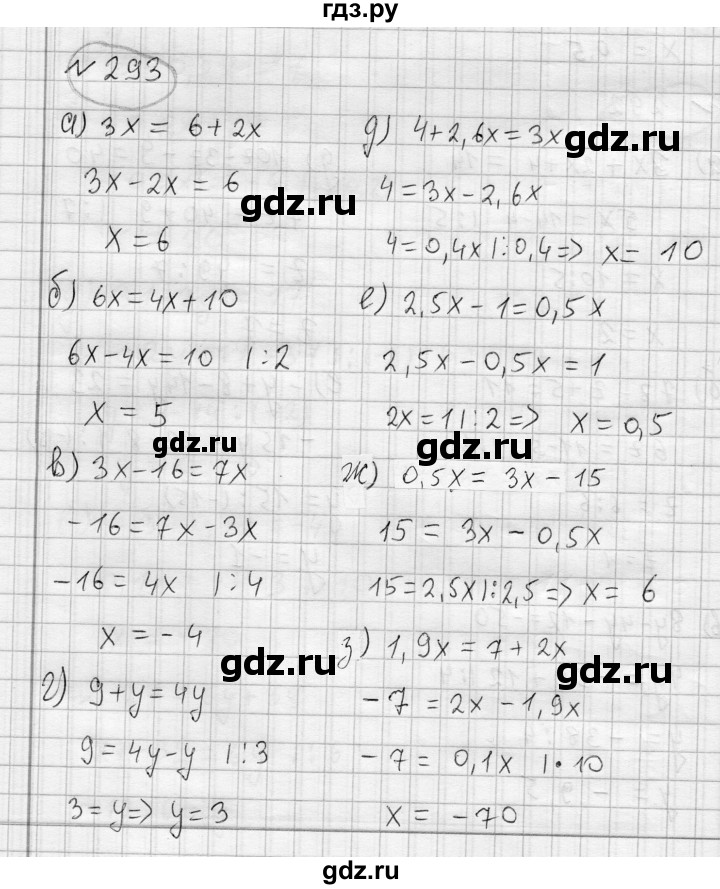 гдз.ру
№ 293
а) 3x = 6 + 2x
3x - 2x = 6
x = 6
б) 6x = 4x + 10
6x - 4x = 10 |:2
x = 5
в) 3x - 16 = 7x
-16 = 7x - 3x
-16 = 4x |:4
x = -4
г) 9 + y = 4y
9 = 4y - y |:3
3 = y => y = 3
д) 4 + 2,6x = 3x
4 = 3x - 2,6x
4 = 0,4x |:0,4 => x = 10
е) 2,5x - 1 = 0,5x
2,5x - 0,5x = 1
2x = 1 |:2 => x = 0,5
ж) 0,5x = 3x - 15
15 = 3x - 0,5x
15 = 2,5x |:2,5 => x = 6
з) 1,9x = 7 + 2x
-7 = 2x - 1,9x
-7 = 0,1x |·10
x = -70
gdz.ru
gdz.ru
gdz.ru
gdz.ru
gdz.ru
gdz.ru
gdz.ru
gdz.ru
gdz.ru